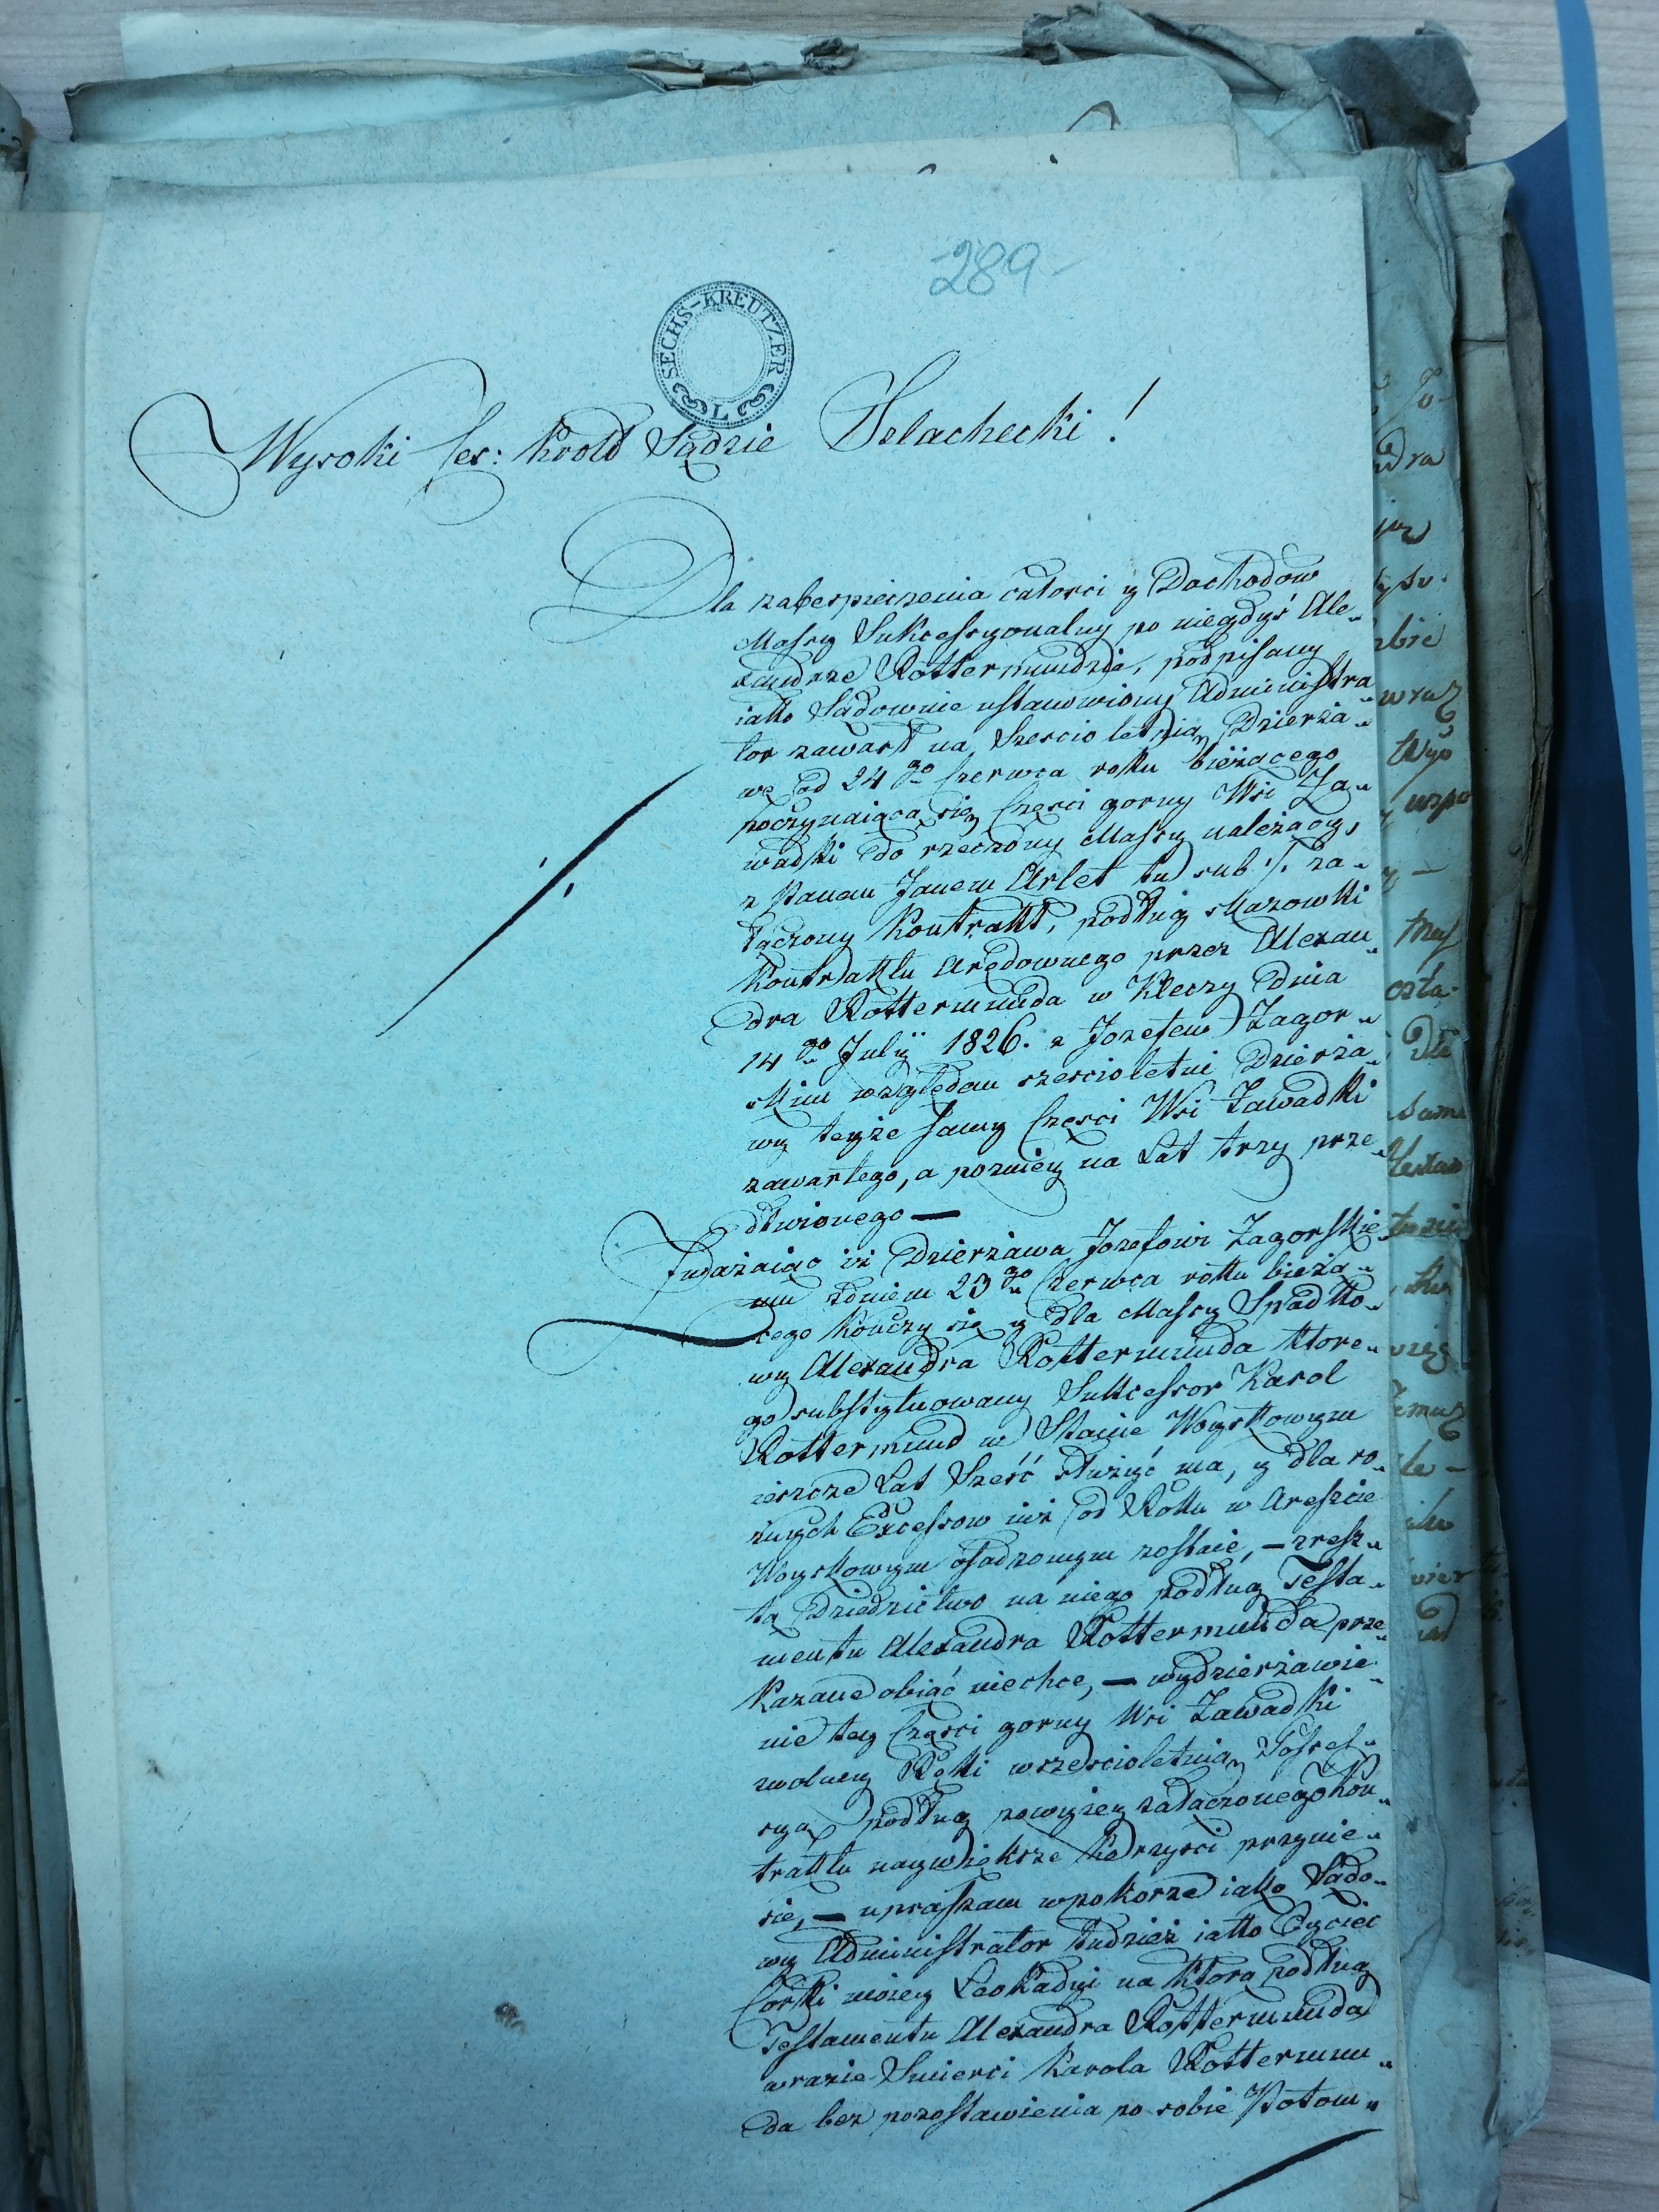 -289-
SECHS-KREUTZER
L
Wysoki Ces: Krolł Sądzie Szlachecki!
Dla zabespieczenia całosci y Dochodow
Massy Sukcessyonalny po niegdyś Ale„
xandrze Rottermundzie, podpisany
iako Sądownie ustanowiony Administra
tor zawarł na Szescio letnią Dzierża„
wę od 24go Czerwca roku bieżącego
poczynaiącą się Części gorny Wsi Za„
wadki do rzeczony Massy należący,
z Panem Janem Arlet tu sub ./. za„
łączony Kontrakt, podług Mazowki
Kontraktu Arędownego przez Alexan„
dra Rottermunda w Kleczy Dnia
14go Julÿ 1826. z Jozefem Zagor„
skim względem szescioletni Dzierża„
wy teyże samy Części Wsi Zawadki
zawartego, a pozniey na Lat trzy prze„
dłuionego —
Zważaiąc iż Dzierzawa Jozefowi Zagorskie„
mu zdniem 23go Czerwca roku bieżą„
cego kończy się y dla Massy Spadko„
wy Alexandra Rottermunda ktore„
go substytuowany Sukcessor Karol
Rottermund w Stanie Woyskowym
ieszcze Lat Sześć służyć ma, y dla ro„
żnych Excessow iuż od Roku w Areszcie
Woyskowym osadzonym zostaie, — zresz„
tą Dziedzictwo na niego podług Testa„
mentu Alexandra Rottermunda prze„
kazane obiąć niechce, — wydzierżawie„
nie tey Części gorny Wsi Zawadki
zwolney Ręki wszescioletnią Posses„
syą podług powyżey załączonego Kon„
traktu naywiększe korzyści przynie„
sie, — upraszam wpokorze iako Sądo„
wy Administrator tudzież iako Oyciec
Corki moiey Leokadyi na ktorą podług
Testamentu Alexandra Rottermunda
wrazie Smierci Karola Rottermun„
da bez pozostawienia po sobie Potom„